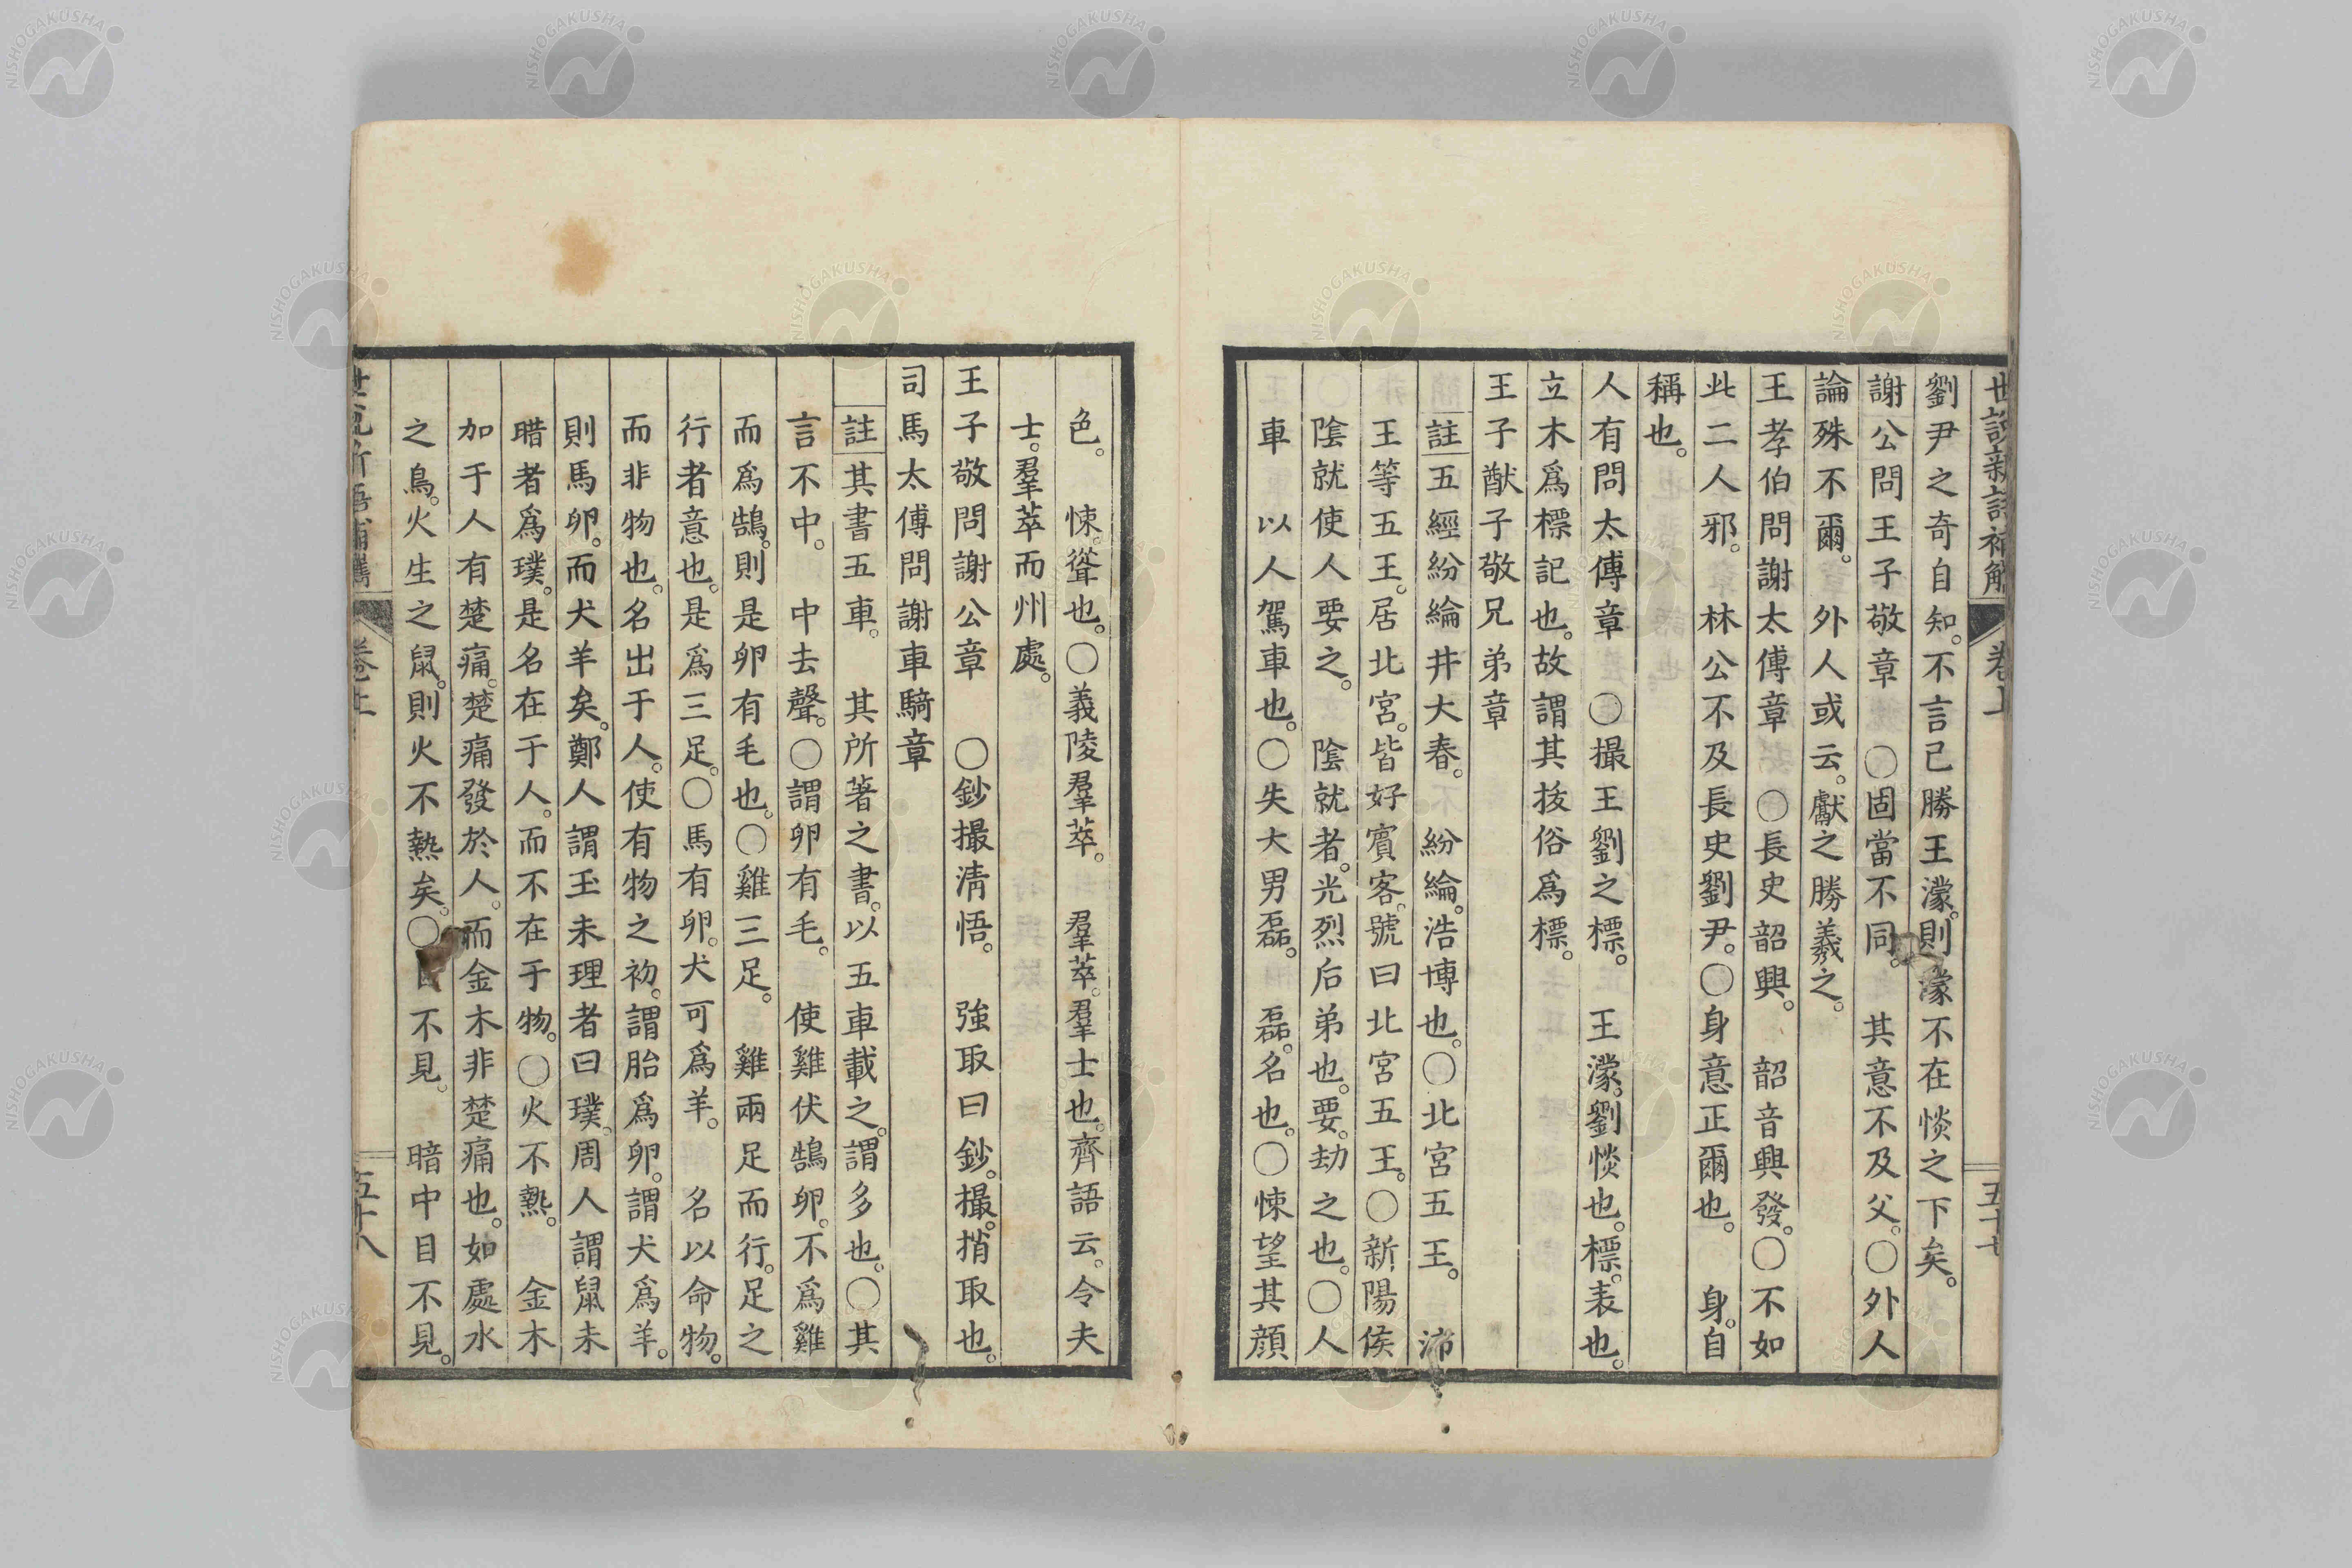 劉尹之奇自知。不言己勝王濛。則濛不在惔之下矣。
謝公問王子敬章　〇固當不同。　其意不及父。〇外人
論殊不爾。　外人或云。獻之勝羲之。
王孝伯問謝太傅章　〇長史韶興。　韶音興發。〇不如
此二人邪。　林公不及長史劉尹。〇身意正爾也。　身。自
稱也。
人有問太傅章　〇撮王劉之標。　王濛。劉惔也。標。表也。
立木爲標記也。故謂其拔俗爲標。
王子猷子敬兄弟章
註五經紛綸井大春。　紛綸。浩博也。〇北宮五王。　沛
王等五王。居北宮。皆好賓客。號曰北宮五王。〇新陽侯
陰就使人要之。　陰就者。光烈后弟也。要。劫之也。〇人
車　以人駕車也。〇失大男磊。　磊。名也。〇悚望其顔
色。　悚。聳也。〇義陵羣萃。　羣萃。羣士也。齊語云。令夫
士。羣萃而州處。
王子敬問謝公章　〇鈔撮淸悟。　強取曰鈔。撮。捎取也。
司馬太傅問謝車騎章
註其書五車。　其所著之書。以五車載之。謂多也。〇其
言不中。　中去聲。〇謂卵有毛。　使雞伏鵠卵。不爲雞
而爲鵠。則是卵有毛也。〇雞三足。　雞兩足而行。足之
行者意也。是爲三足。〇馬有卵。犬可爲羊。　名以命物。
而非物也。名出于人。使有物之初。謂胎爲卵。謂犬爲羊。
則馬卵。而犬羊矣。鄭人謂玉未理者曰璞。周人謂鼠未
腊者爲璞。是名在于人。而不在于物。〇火不熱。　金木
加于人有楚痛。楚痛發於人。而金木非楚痛也。如處水
之鳥。火生之鼠。則火不熱矣。〇目不見。　暗中目不見。
卷上
五十八